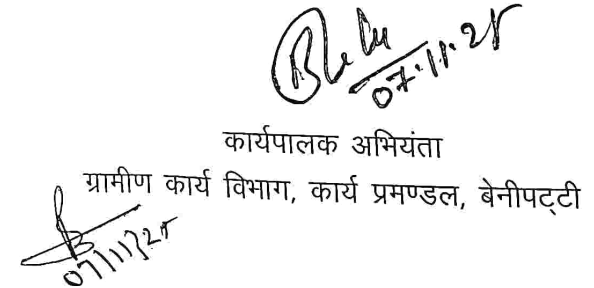 07.11.25
कार्यपालक अभियंता
ग्रामीण कार्य विभाग, कार्य प्रमण्डल, बेनीपट्टी
07/11/25